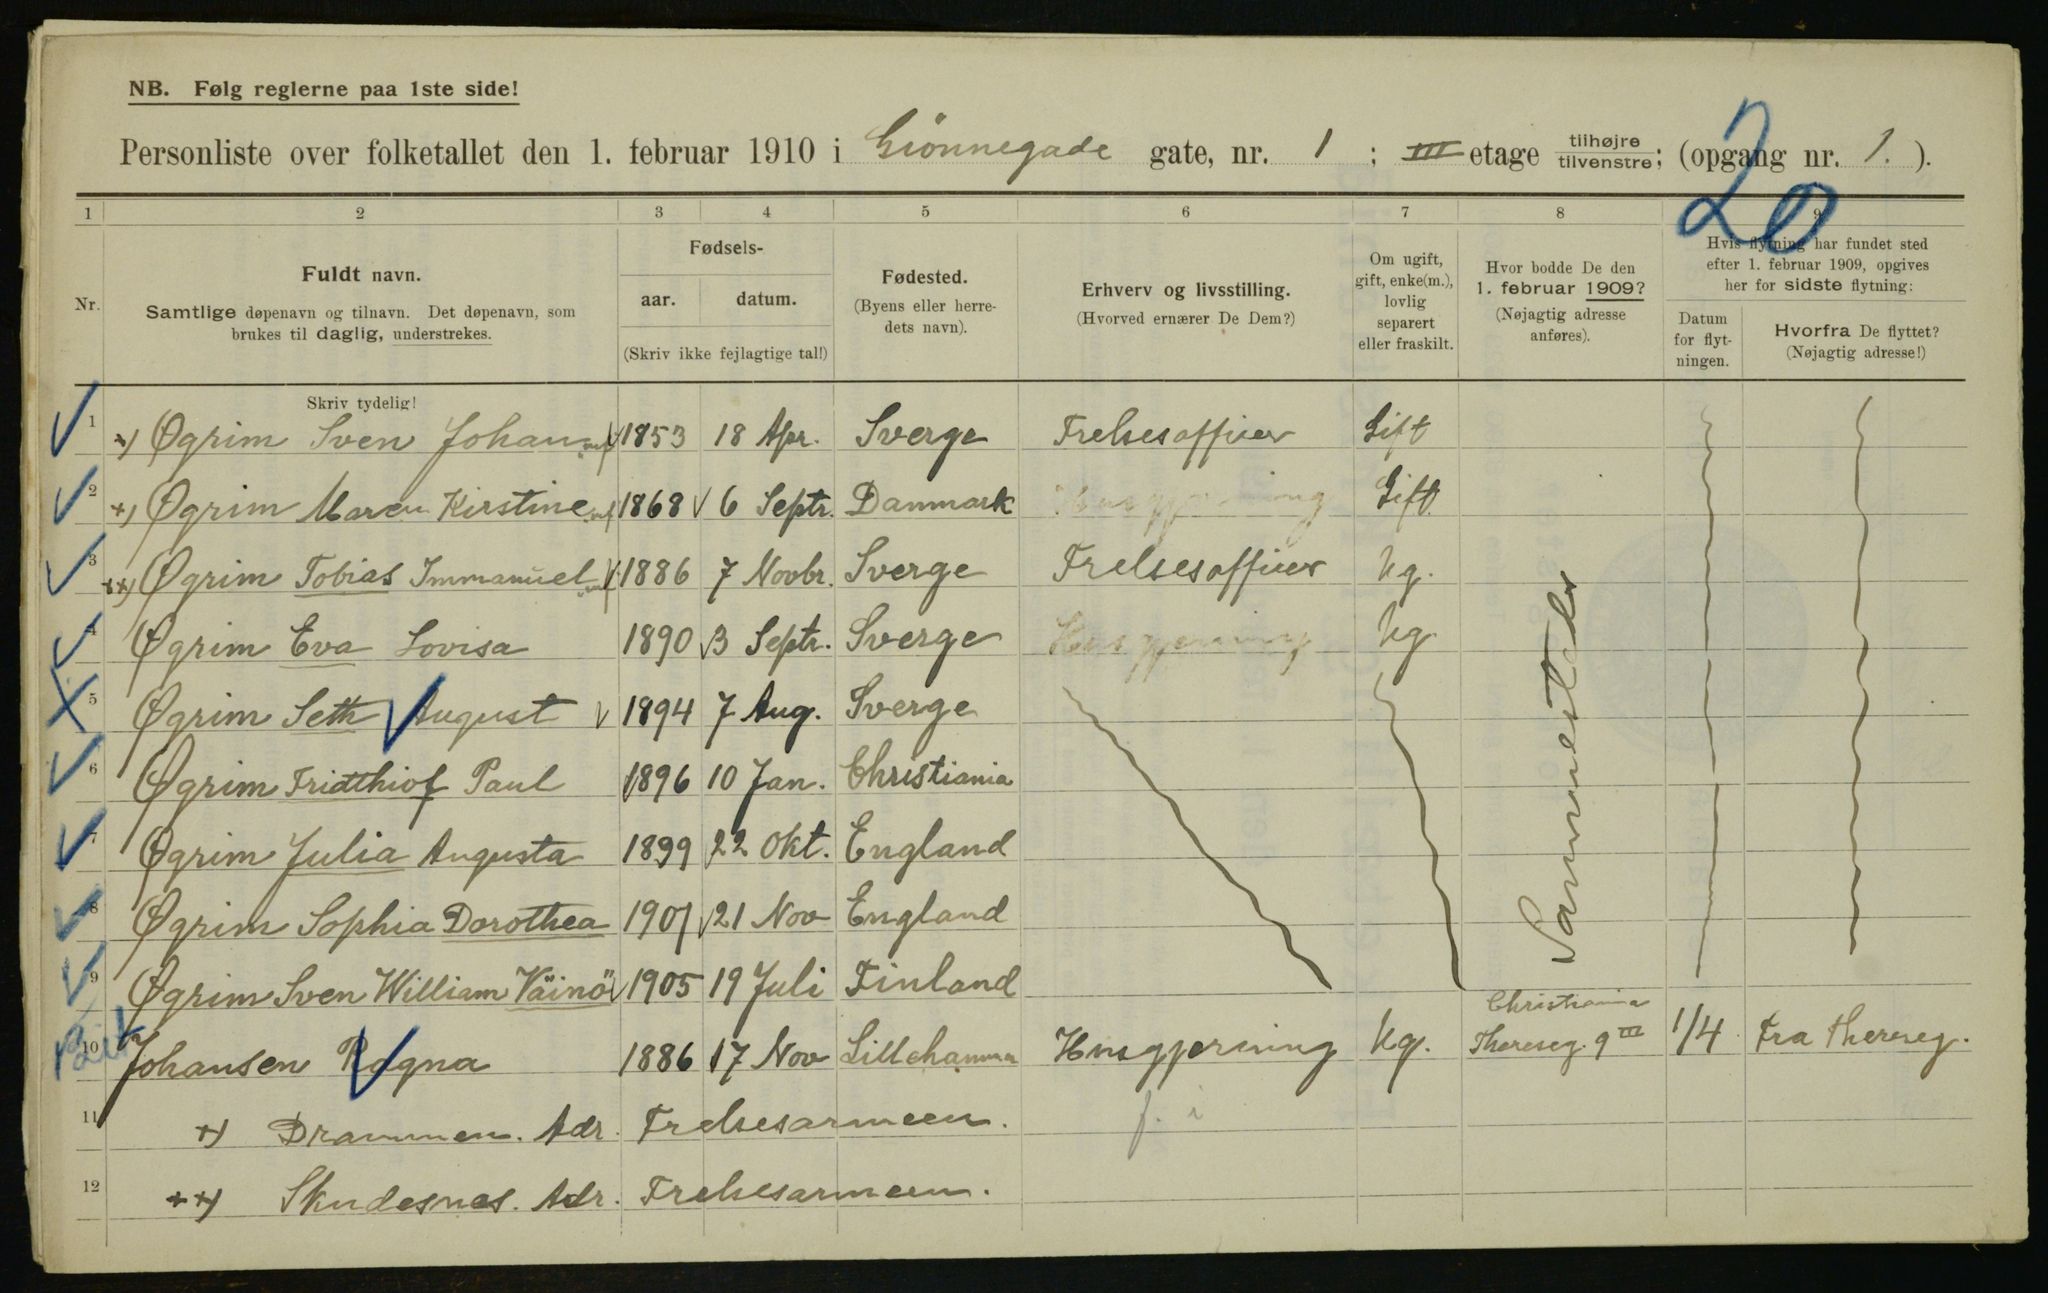 NB. Følg reglerne paa 1ste side!
Personliste over folketallet den 1. februar 1910 i Grönnegade gate, nr. 1 ; III etage tilhøjre tilvenstre; (opgang nr. 1. ).
20
1 2 3 4 5 6 7 8 9
Nr.
Fuldt navn.
Samtlige døpenavn og tilnavn. Det døpenavn, som
brukes til daglig, understrekes.
Fødsels-
aar. datum.
(Skriv ikke fejlagtige tal!)
Fødested.
(Byens eller herre-
dets navn).
Erhverv og livsstilling.
(Hvorved ernærer De Dem?)
Om ugift,
gift, enke(m.),
lovlig
separert
eller fraskilt.
Hvor bodde De den
1. februar 1909?
(Nøjagtig adresse
anføres).
Hvis flytning har fundet sted
efter 1. februar 1909, opgives
her for sidste flytning:
Datum
for flyt-
ningen.
Hvorfra De flyttet?
(Nøjagtig adresse!)
Skriv tydelig!
1 +) Øgrim Sven Johan 1853 18 Apr. Sverge Frelsesofficer Gift
2 +) Øgrim Maren Kirstine 1868 6 Septr. Danmark Husgjerning Gift
3 ++) Øgrim Tobias Immanuel 1886 7 Novbr. Sverge Frelsesofficer Ug.
4 Øgrim Eva Lovisa 1890 3 Septr. Sverge Husgjerning Ug
5 Øgrim Seth August 1894 7 Aug. Sverge
6 Øgrim Fridthiof Paul 1896 10 Jan. Christiania
7 Øgrim Julia Augusta 1899 22 Okt. England
8 Øgrim Sophia Dorothea 1901 21 Nov England
9 Øgrim Sven William Väinö 1905 19 Juli Finland
Sammesteds
10 Johansen Ragna 1886 17 Nov Lillehammer Husgjerning Ug. Christiania Thereseg. 9 III 1/4 Fra Thereseg.
11 +) Drammen. Adr. Frelsesarmeen. f. i
12 ++) Skudesnes. Adr. Frelsesarmeen.